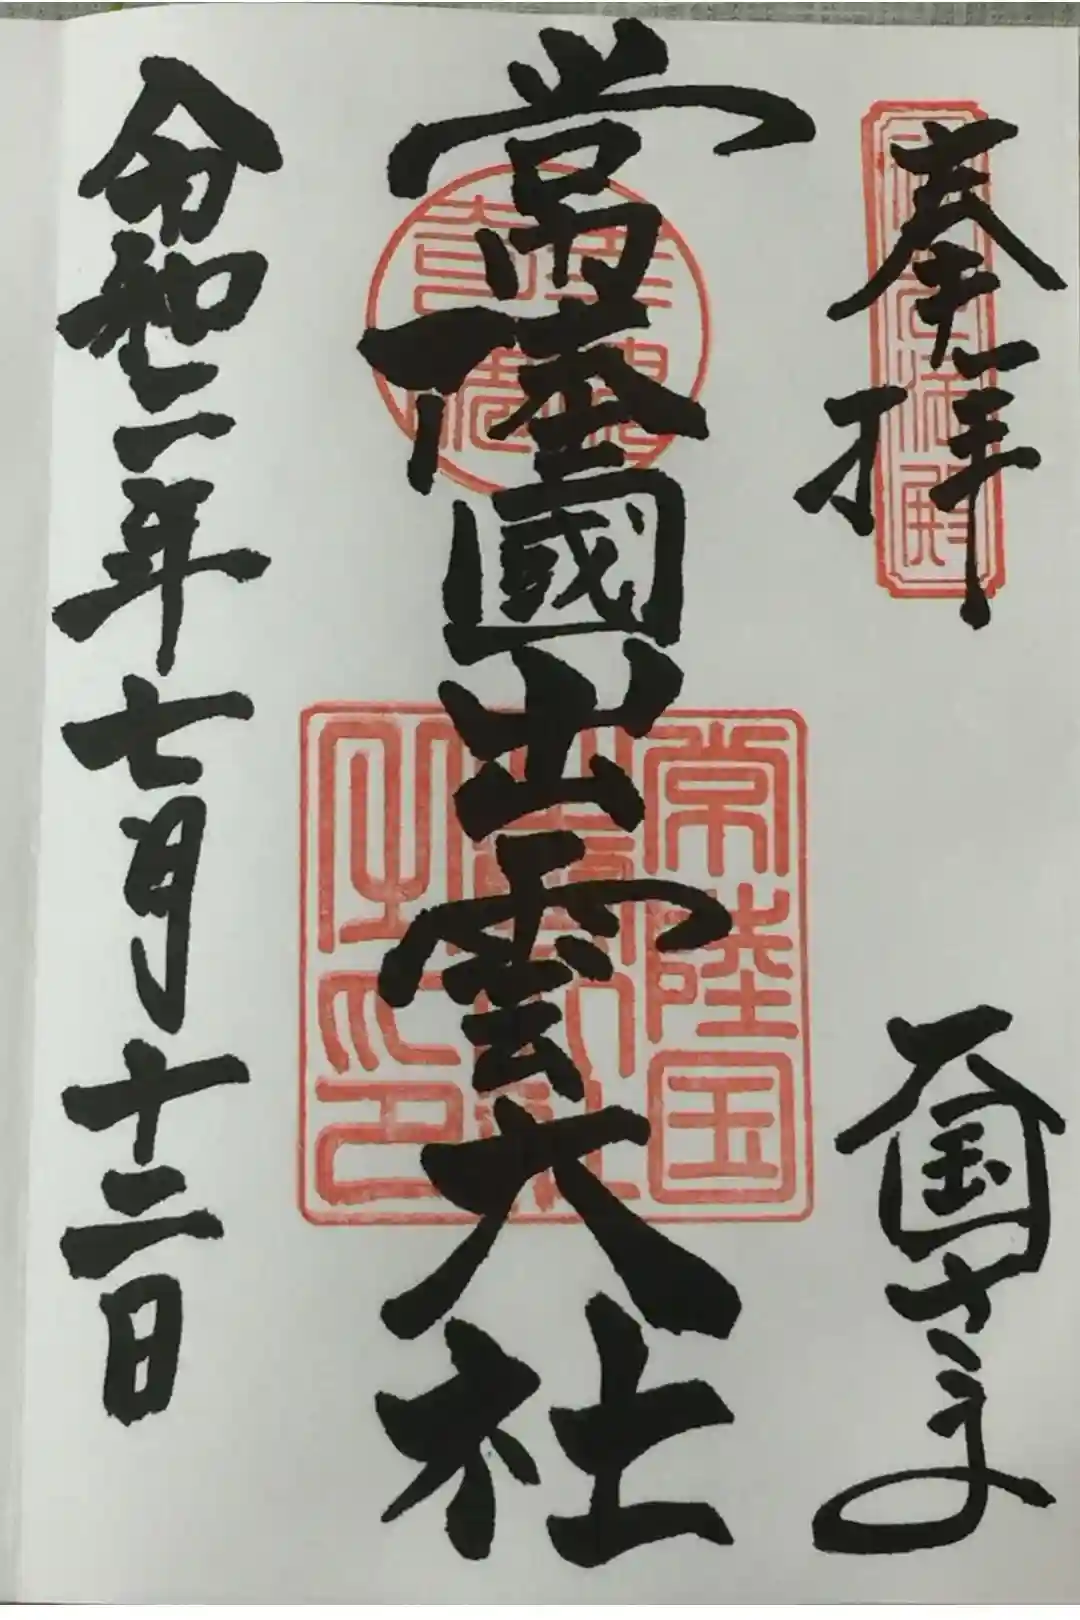 奉拝
大国さま
常陸國出雲大社
令和二年七月十二日
幸魂
奇魂
常陸国
出雲大社
之印